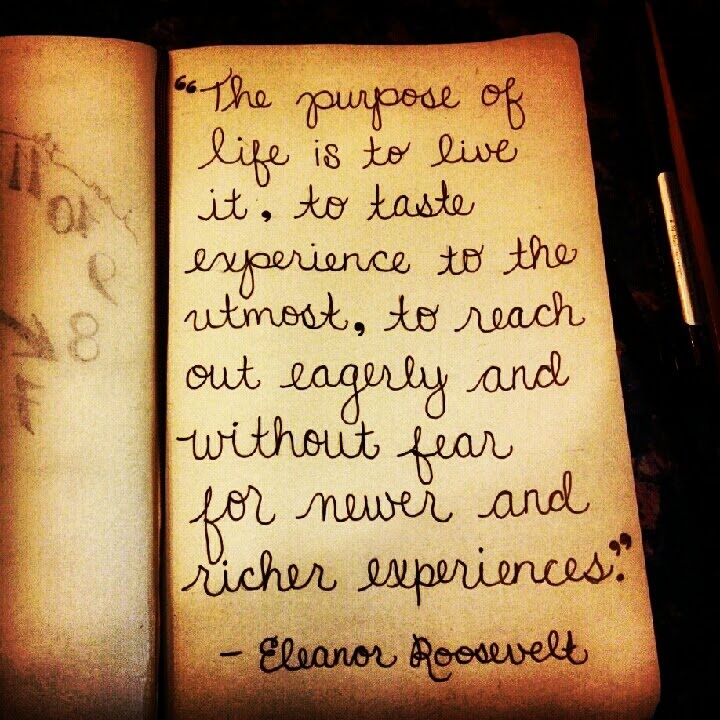 “The purpose of
life is to live
it, to taste
experience to the
utmost, to reach
out eagerly and
without fear
for newer and
richer experiences.”
- Eleanor Roosevelt
11
10
9
8